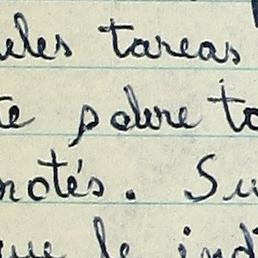 tareas
te sobre to
notés. Su
que le indi